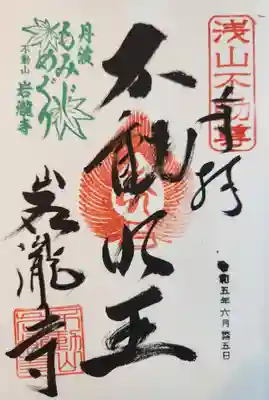 浅山不動尊
奉拝
不動明王
岩瀧寺
令和五年六月
丹波
もみじ
めぐり
不動山
岩瀧寺